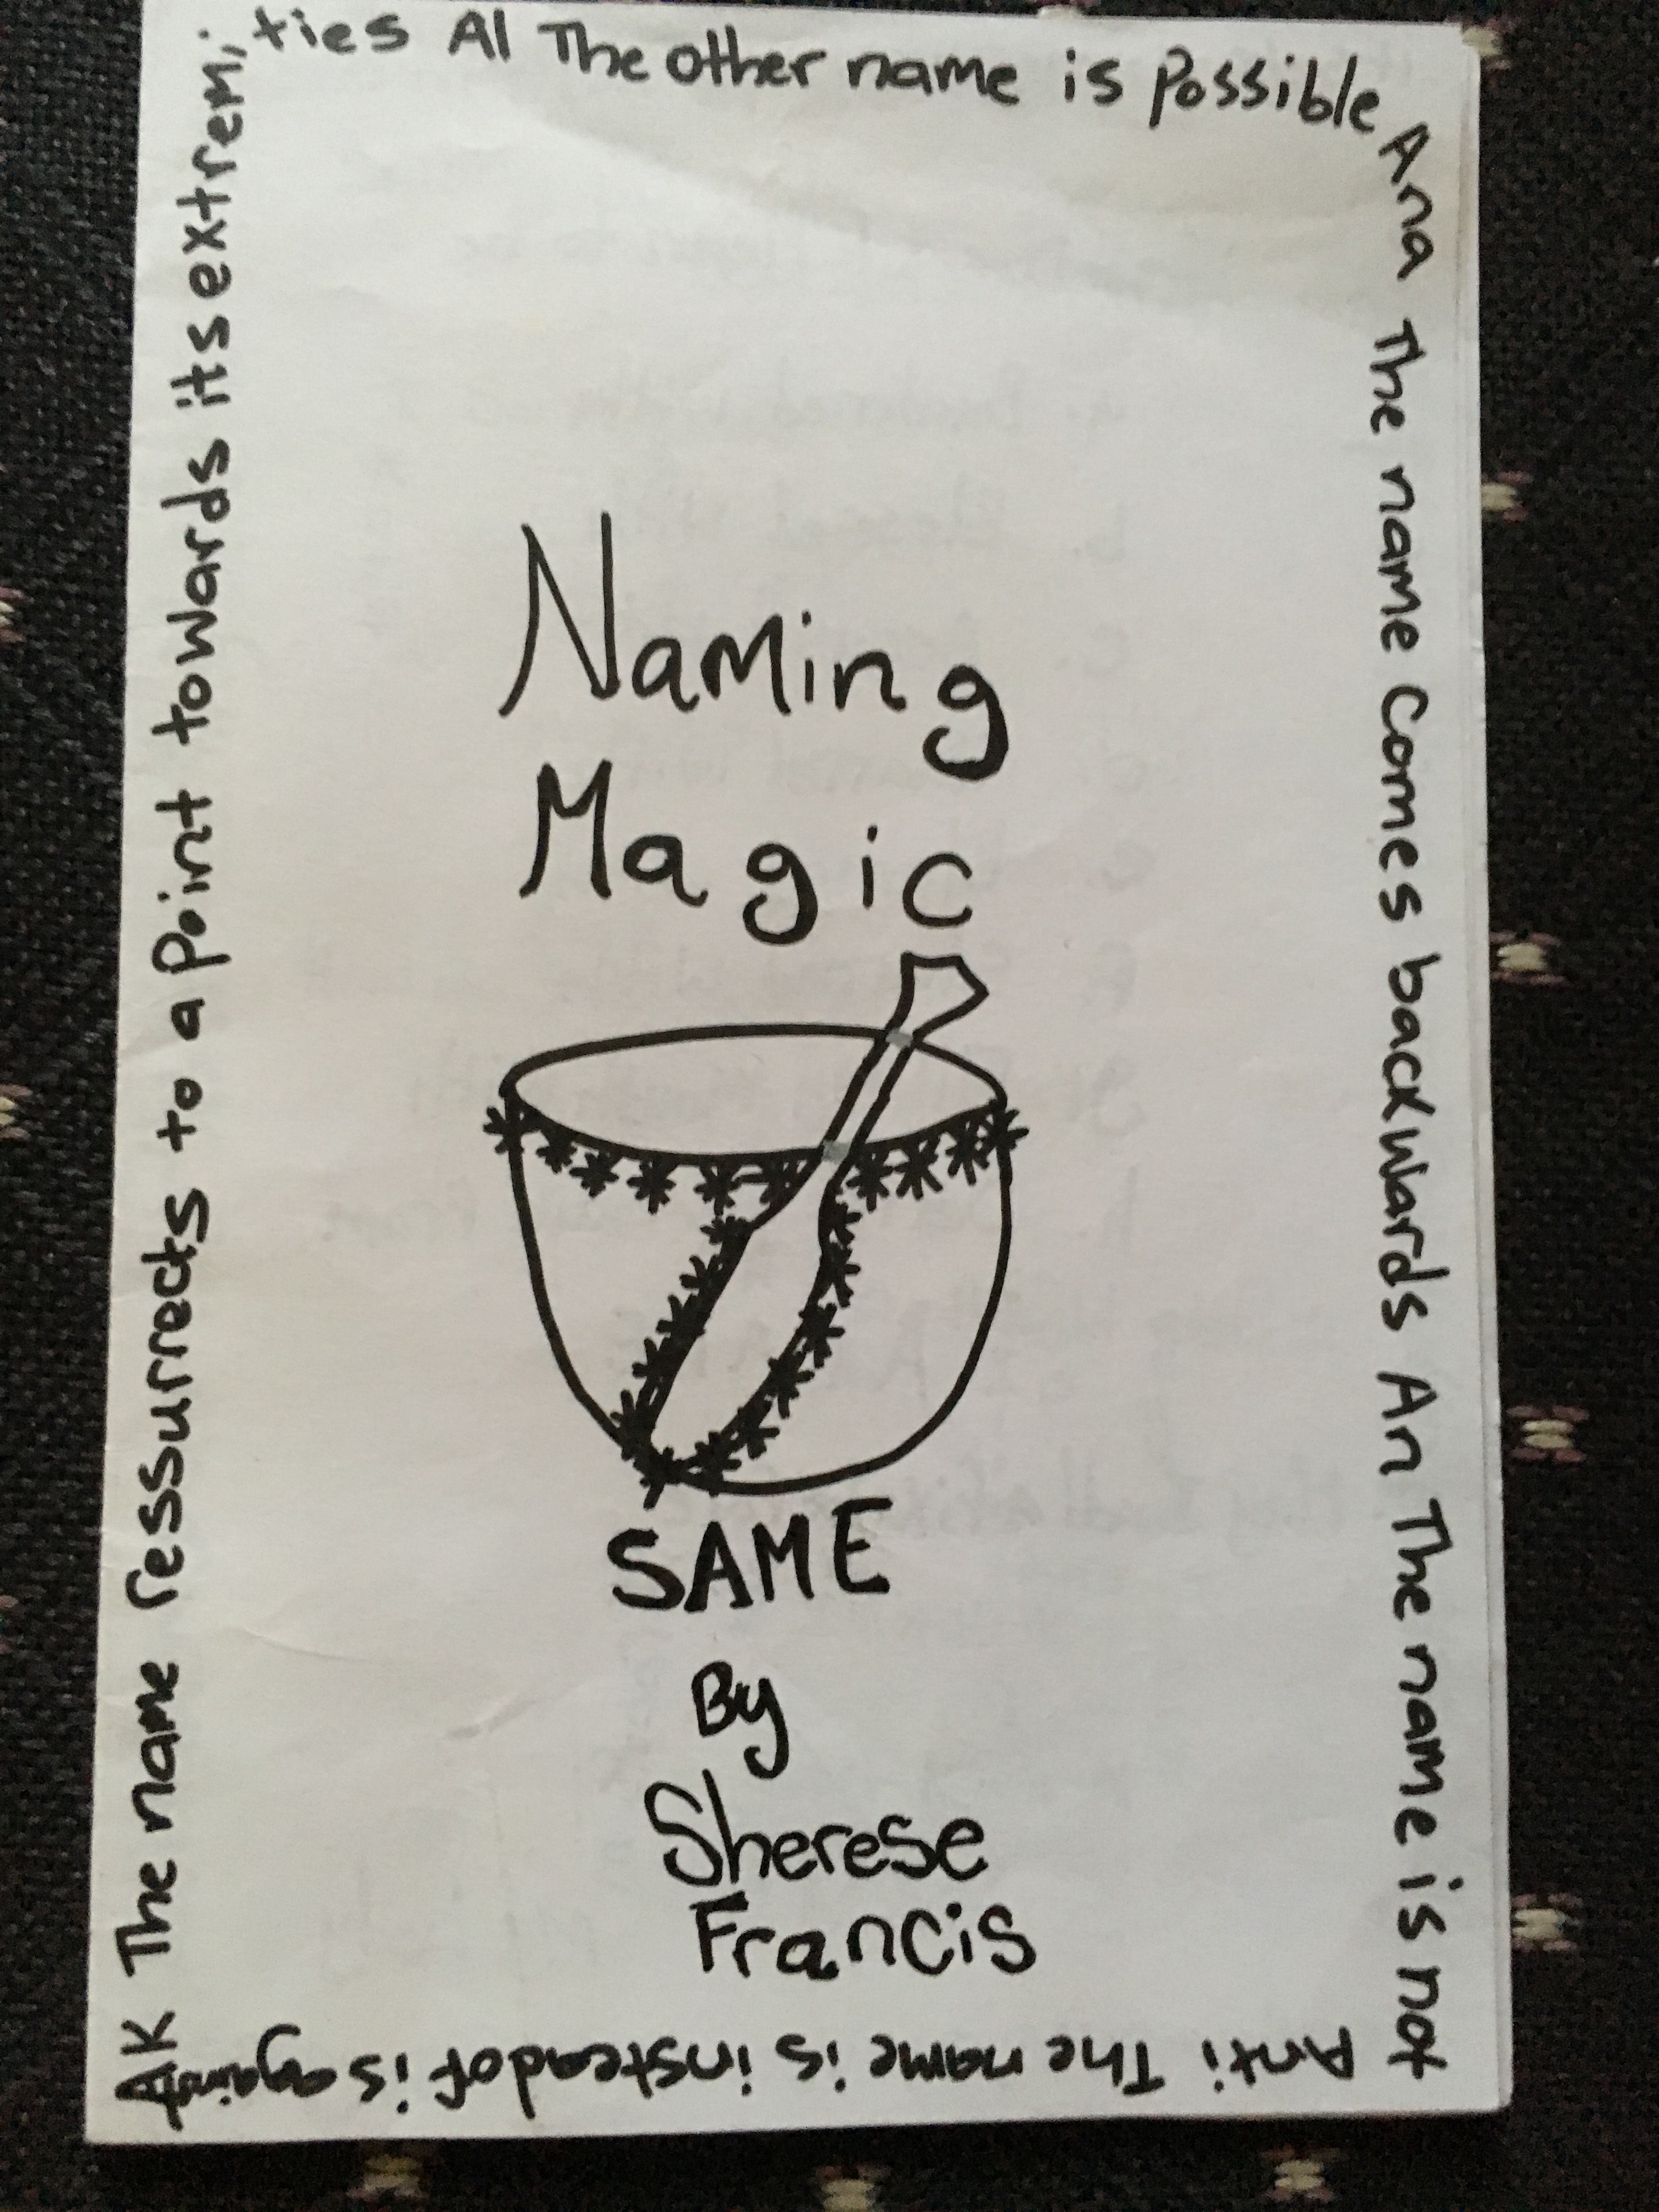 AK The name ressurrects to a point towards its extremi
ties Al The other name is possible
Ana The name comes backwards An The name is not
Anti The name is instead of is against
Naming
Magic
SAME
By
Sherese
Francis